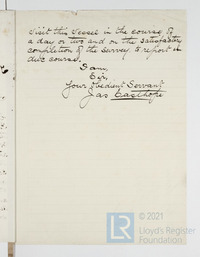 Visit this Vessel in the course of
a day or two and on the satisfactory
completion of the survey to report in
due course.
I am,
Sir,
Your obedient Servant
Jas Casthope
© 2021
LR
Lloyd's Register
Foundation